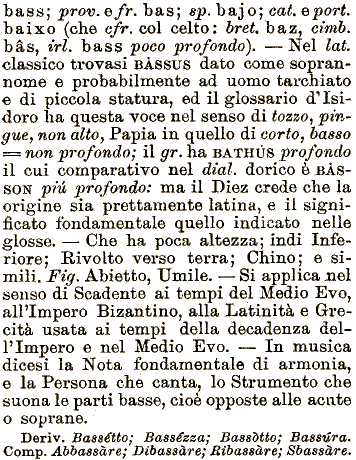 bass; prov. e fr. bas; sp. bajo; cat. e port.
baixo (che cfr. col celto: bret. baz, cimb.
bâs, irl. bass poco profondo). — Nel lat.
classico trovasi BÀSSUS dato come sopran-
nome e probabilmente ad uomo tarchiato
e di piccola statura, ed il glossario d'Isi-
doro ha questa voce nel senso di tozzo, pin-
gue, non alto, Papia in quello di corto, basso
= non profondo; il gr. ha BATHÚS profondo
il cui comparativo nel dial. dorico è BÀS-
SON piú profondo: ma il Diez crede che la
origine sia prettamente latina, e il signi-
ficato fondamentale quello indicato nelle
glosse. — Che ha poca altezza; indi Infe-
riore; Rivolto verso terra; Chino; e si-
mili. Fig. Abietto, Umile. — Si applica nel
senso di Scadente ai tempi del Medio Evo,
all'Impero Bizantino, alla Latinità e Gre-
cità usata ai tempi della decadenza del-
l'Impero e nel Medio Evo. — In musica
dicesi la Nota fondamentale di armonia,
e la Persona che canta, lo Strumento che
suona le parti basse, cioè opposte alle acute
o soprane.
Deriv. Bassétto; Bassézza; Bassòtto; Bassúra.
Comp. Abbassàre; Dibassàre; Ribassàre; Sbassàre.